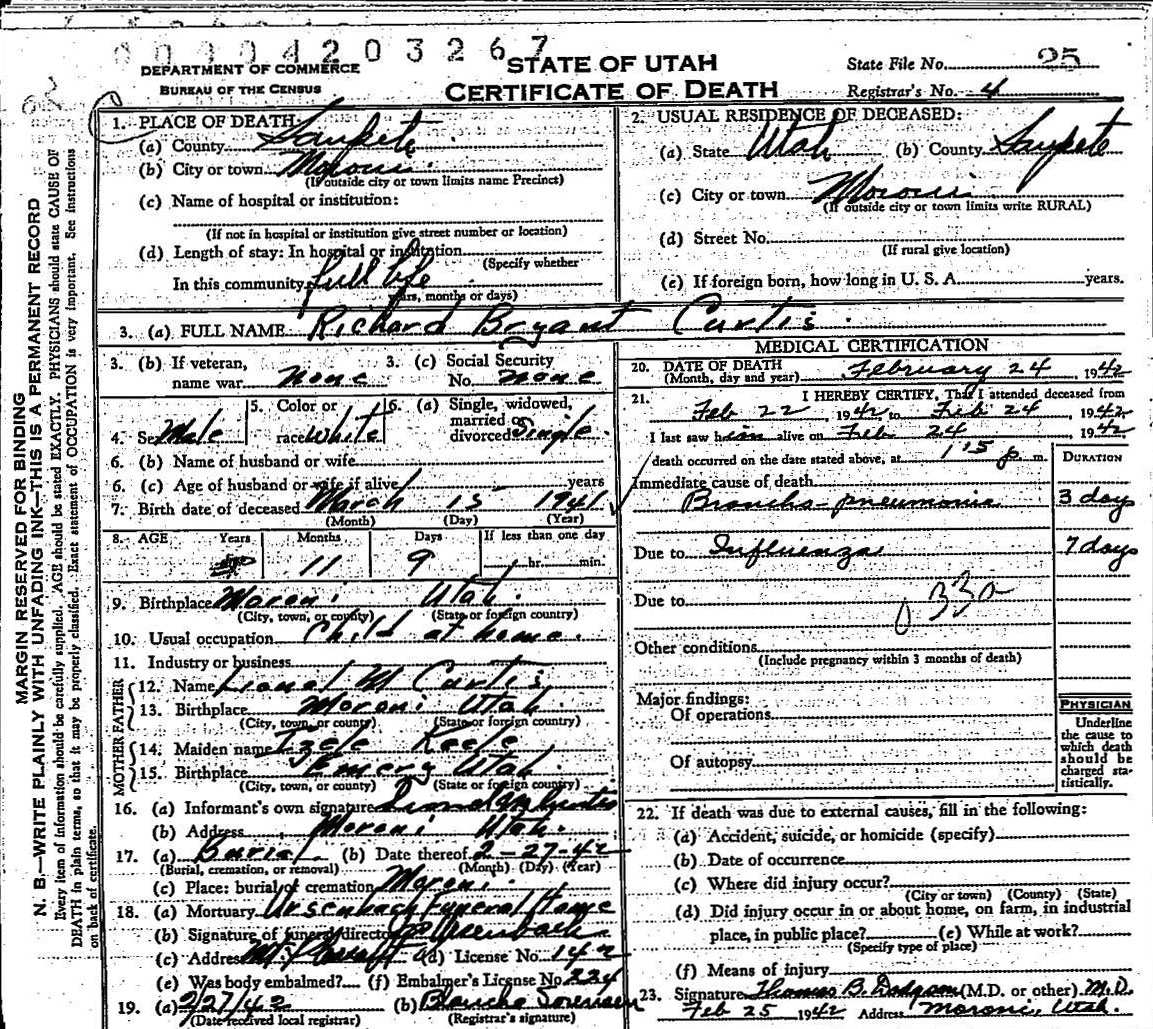 0 0 0 0 4 2 0 3 2 6 7
DEPARTMENT OF COMMERCE
BUREAU OF THE CENSUS
STATE OF UTAH
CERTIFICATE OF DEATH
State File No. 25
Registrar's No. 4
MARGIN RESERVED FOR BINDING
N. B.—WRITE PLAINLY WITH UNFADING INK—THIS IS A PERMANENT RECORD
Every item of information should be carefully supplied. AGE should be stated EXACTLY. PHYSICIANS should state CAUSE OF
DEATH in plain terms, so that it may be properly classified. Exact statement of OCCUPATION is very important. See instructions
on back of certificate.
1. PLACE OF DEATH:
(a) County Sanpete
(b) City or town Moroni
(If outside city or town limits name Precinct)
(c) Name of hospital or institution:
(If not in hospital or institution give street number or location)
(d) Length of stay: In hospital or institution
(Specify whether
In this community full life
years, months or days)
2. USUAL RESIDENCE OF DECEASED:
(a) State Utah (b) County Sanpete
(c) City or town Moroni
(If outside city or town limits write RURAL)
(d) Street No.
(If rural give location)
(e) If foreign born, how long in U. S. A. years.
3. (a) FULL NAME Richard Bryant Curtis
3. (b) If veteran, name war none
3. (c) Social Security No. none
4. Sex Male
5. Color or race White
6. (a) Single, widowed, married or divorced Single
6. (b) Name of husband or wife
6. (c) Age of husband or wife if alive years
7. Birth date of deceased March 15 1941
(Month) (Day) (Year)
8. AGE Years Months Days If less than one day
11 9 hr. min.
9. Birthplace Moroni Utah
(City, town, or county) (State or foreign country)
10. Usual occupation Child at home
11. Industry or business
FATHER
12. Name Lionel M Curtis
13. Birthplace Moroni Utah
(City, town, or county) (State or foreign country)
MOTHER
14. Maiden name Keele
15. Birthplace Emery Utah
(City, town, or county) (State or foreign country)
16. (a) Informant's own signature Lionel M Curtis
(b) Address Moroni Utah
17. (a) Burial (b) Date thereof 2-27-42
(Burial, cremation, or removal) (Month) (Day) (Year)
(c) Place: burial or cremation Moroni
18. (a) Mortuary Ursenbach Funeral Home
(b) Signature of funeral director Ursenbach
(c) Address Mt. Pleasant (d) License No. 142
(e) Was body embalmed? (f) Embalmer's License No 224
19. (a) 2/27/42 (b) Blanche Sorensen
(Date received local registrar) (Registrar's signature)
MEDICAL CERTIFICATION
20. DATE OF DEATH
(Month, day and year) February 24 1942
21. I HEREBY CERTIFY, That I attended deceased from
Feb 22, 1942 to Feb 24, 1942
I last saw him alive on Feb 24, 1942
death occurred on the date stated above, at 1:15 p m.
DURATION
Immediate cause of death
Broncho-pneumonia 3 days
Due to Influenza 7 days
Due to
033a
Other conditions
(Include pregnancy within 3 months of death)
Major findings:
Of operations
Of autopsy
PHYSICIAN
Underline
the cause to
which death
should be
charged sta-
tistically.
22. If death was due to external causes, fill in the following:
(a) Accident, suicide, or homicide (specify)
(b) Date of occurrence
(c) Where did injury occur?
(City or town) (County) (State)
(d) Did injury occur in or about home, on farm, in industrial
place, in public place? (e) While at work?
(Specify type of place)
(f) Means of injury
23. Signature Thomas B. Dodgson (M.D. or other) M.D.
Feb 25 1942 Address Moroni, Utah.